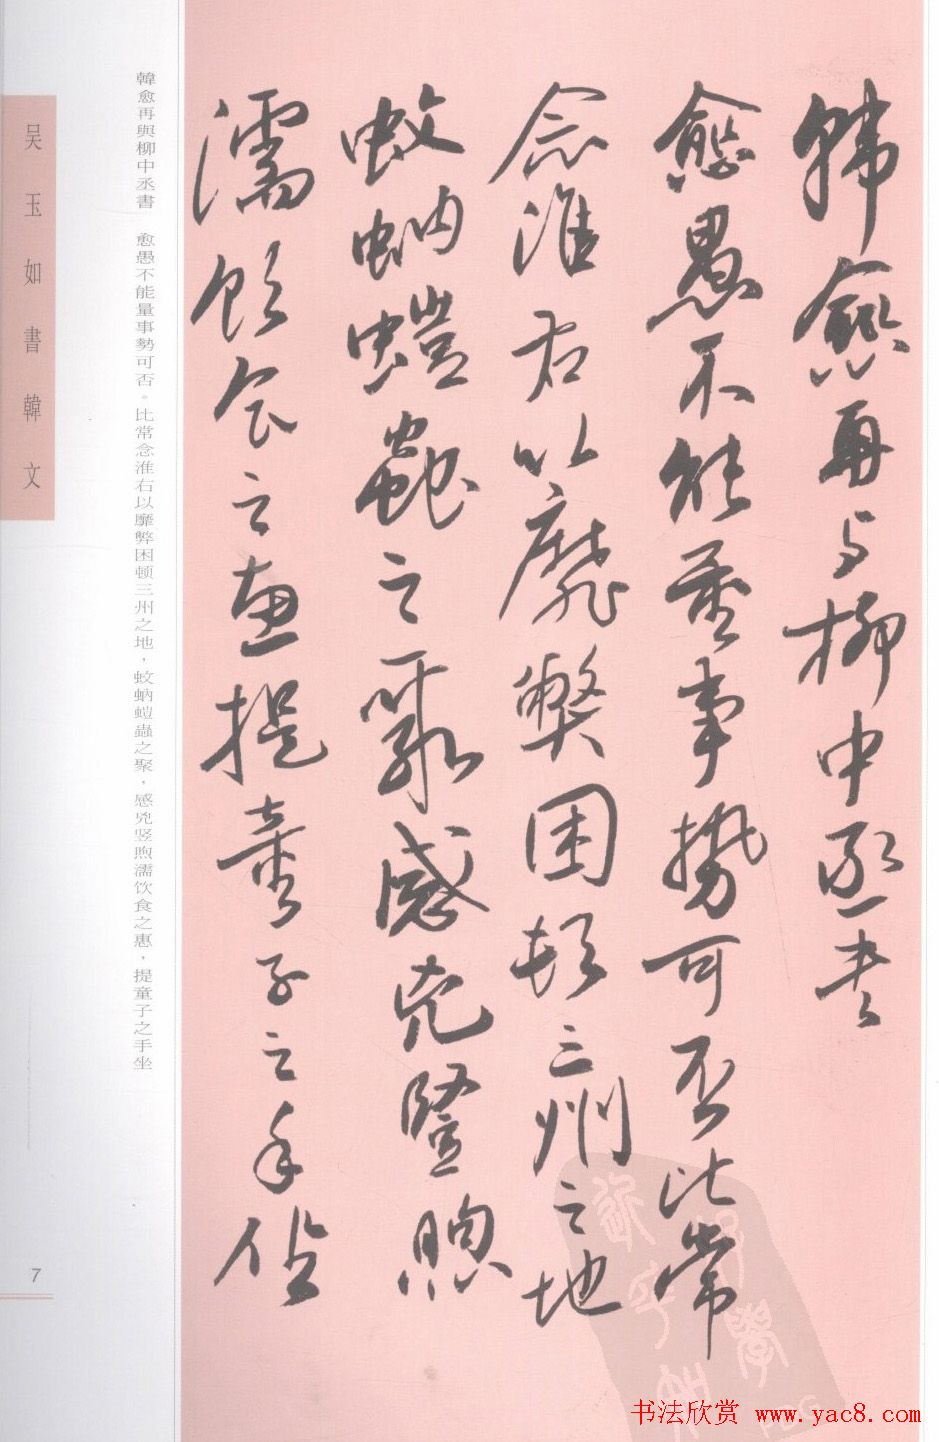 韓愈再与柳中丞書
愈愚不能量事勢可否比常
念淮右以靡弊困頓三州之地
蚊蚋螘蟲之聚感兇豎煦
濡飲食之惠提童子之手坐
韓愈再與柳中丞書 愈愚不能量事勢可否。比常念淮右以靡弊困顿三州之地，蚊蚋螘蟲之聚，感兇竖煦濡饮食之惠，提童子之手坐
吴玉如書韓文
7
书法欣赏 www.yac8.com